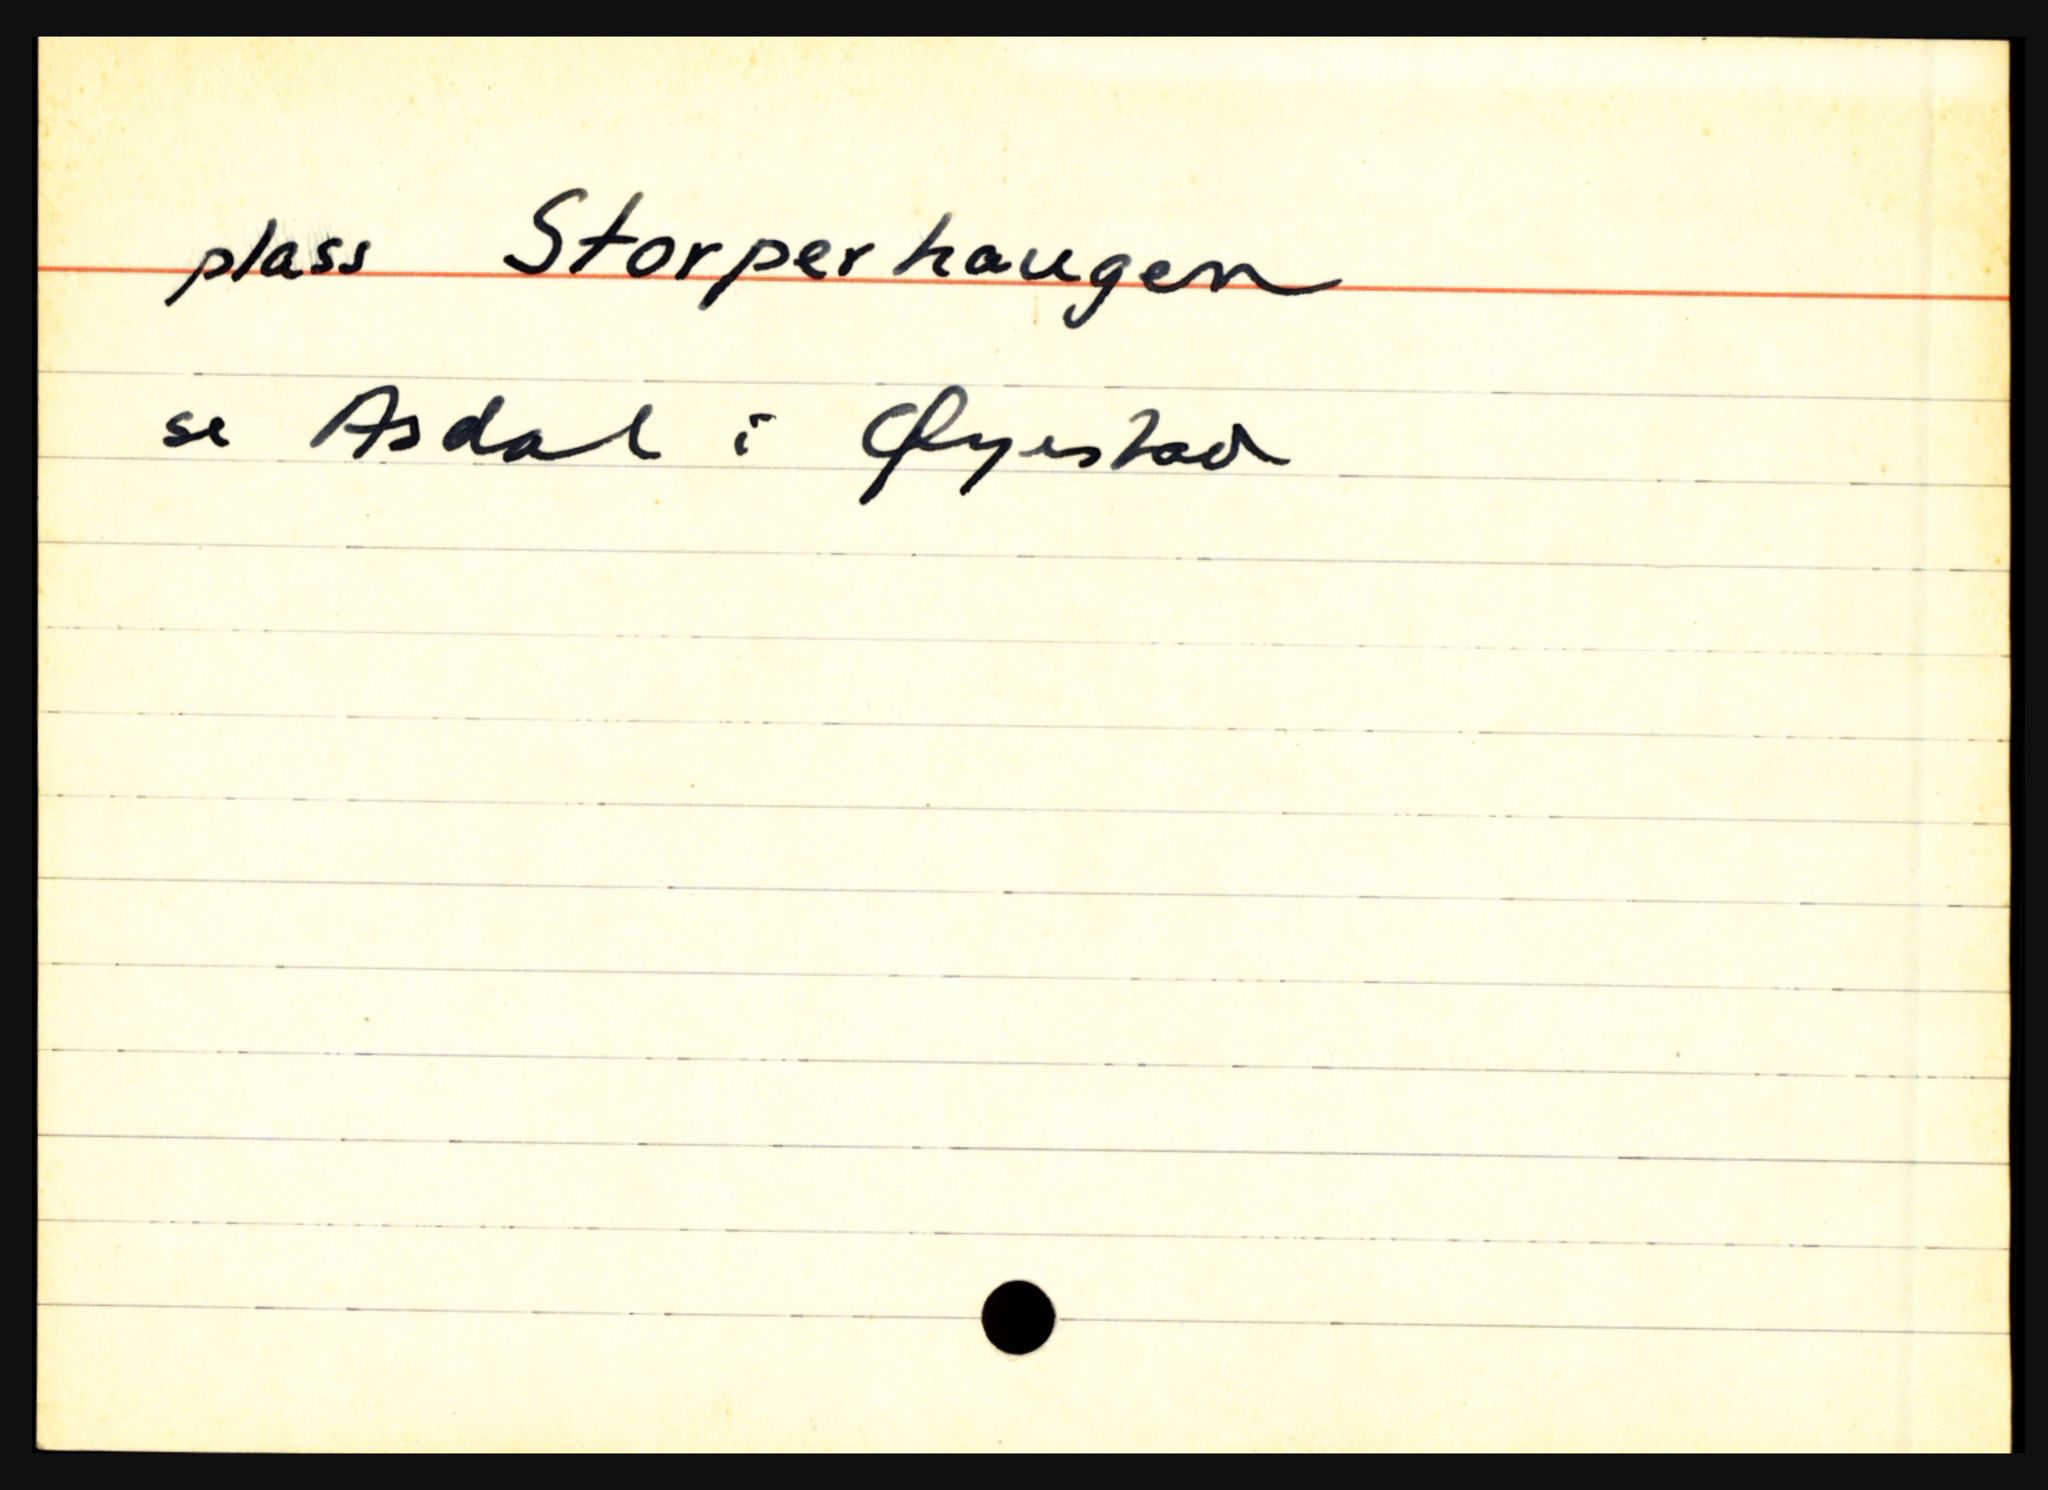 plass Storperhaugen
se Asdal i Øyestad